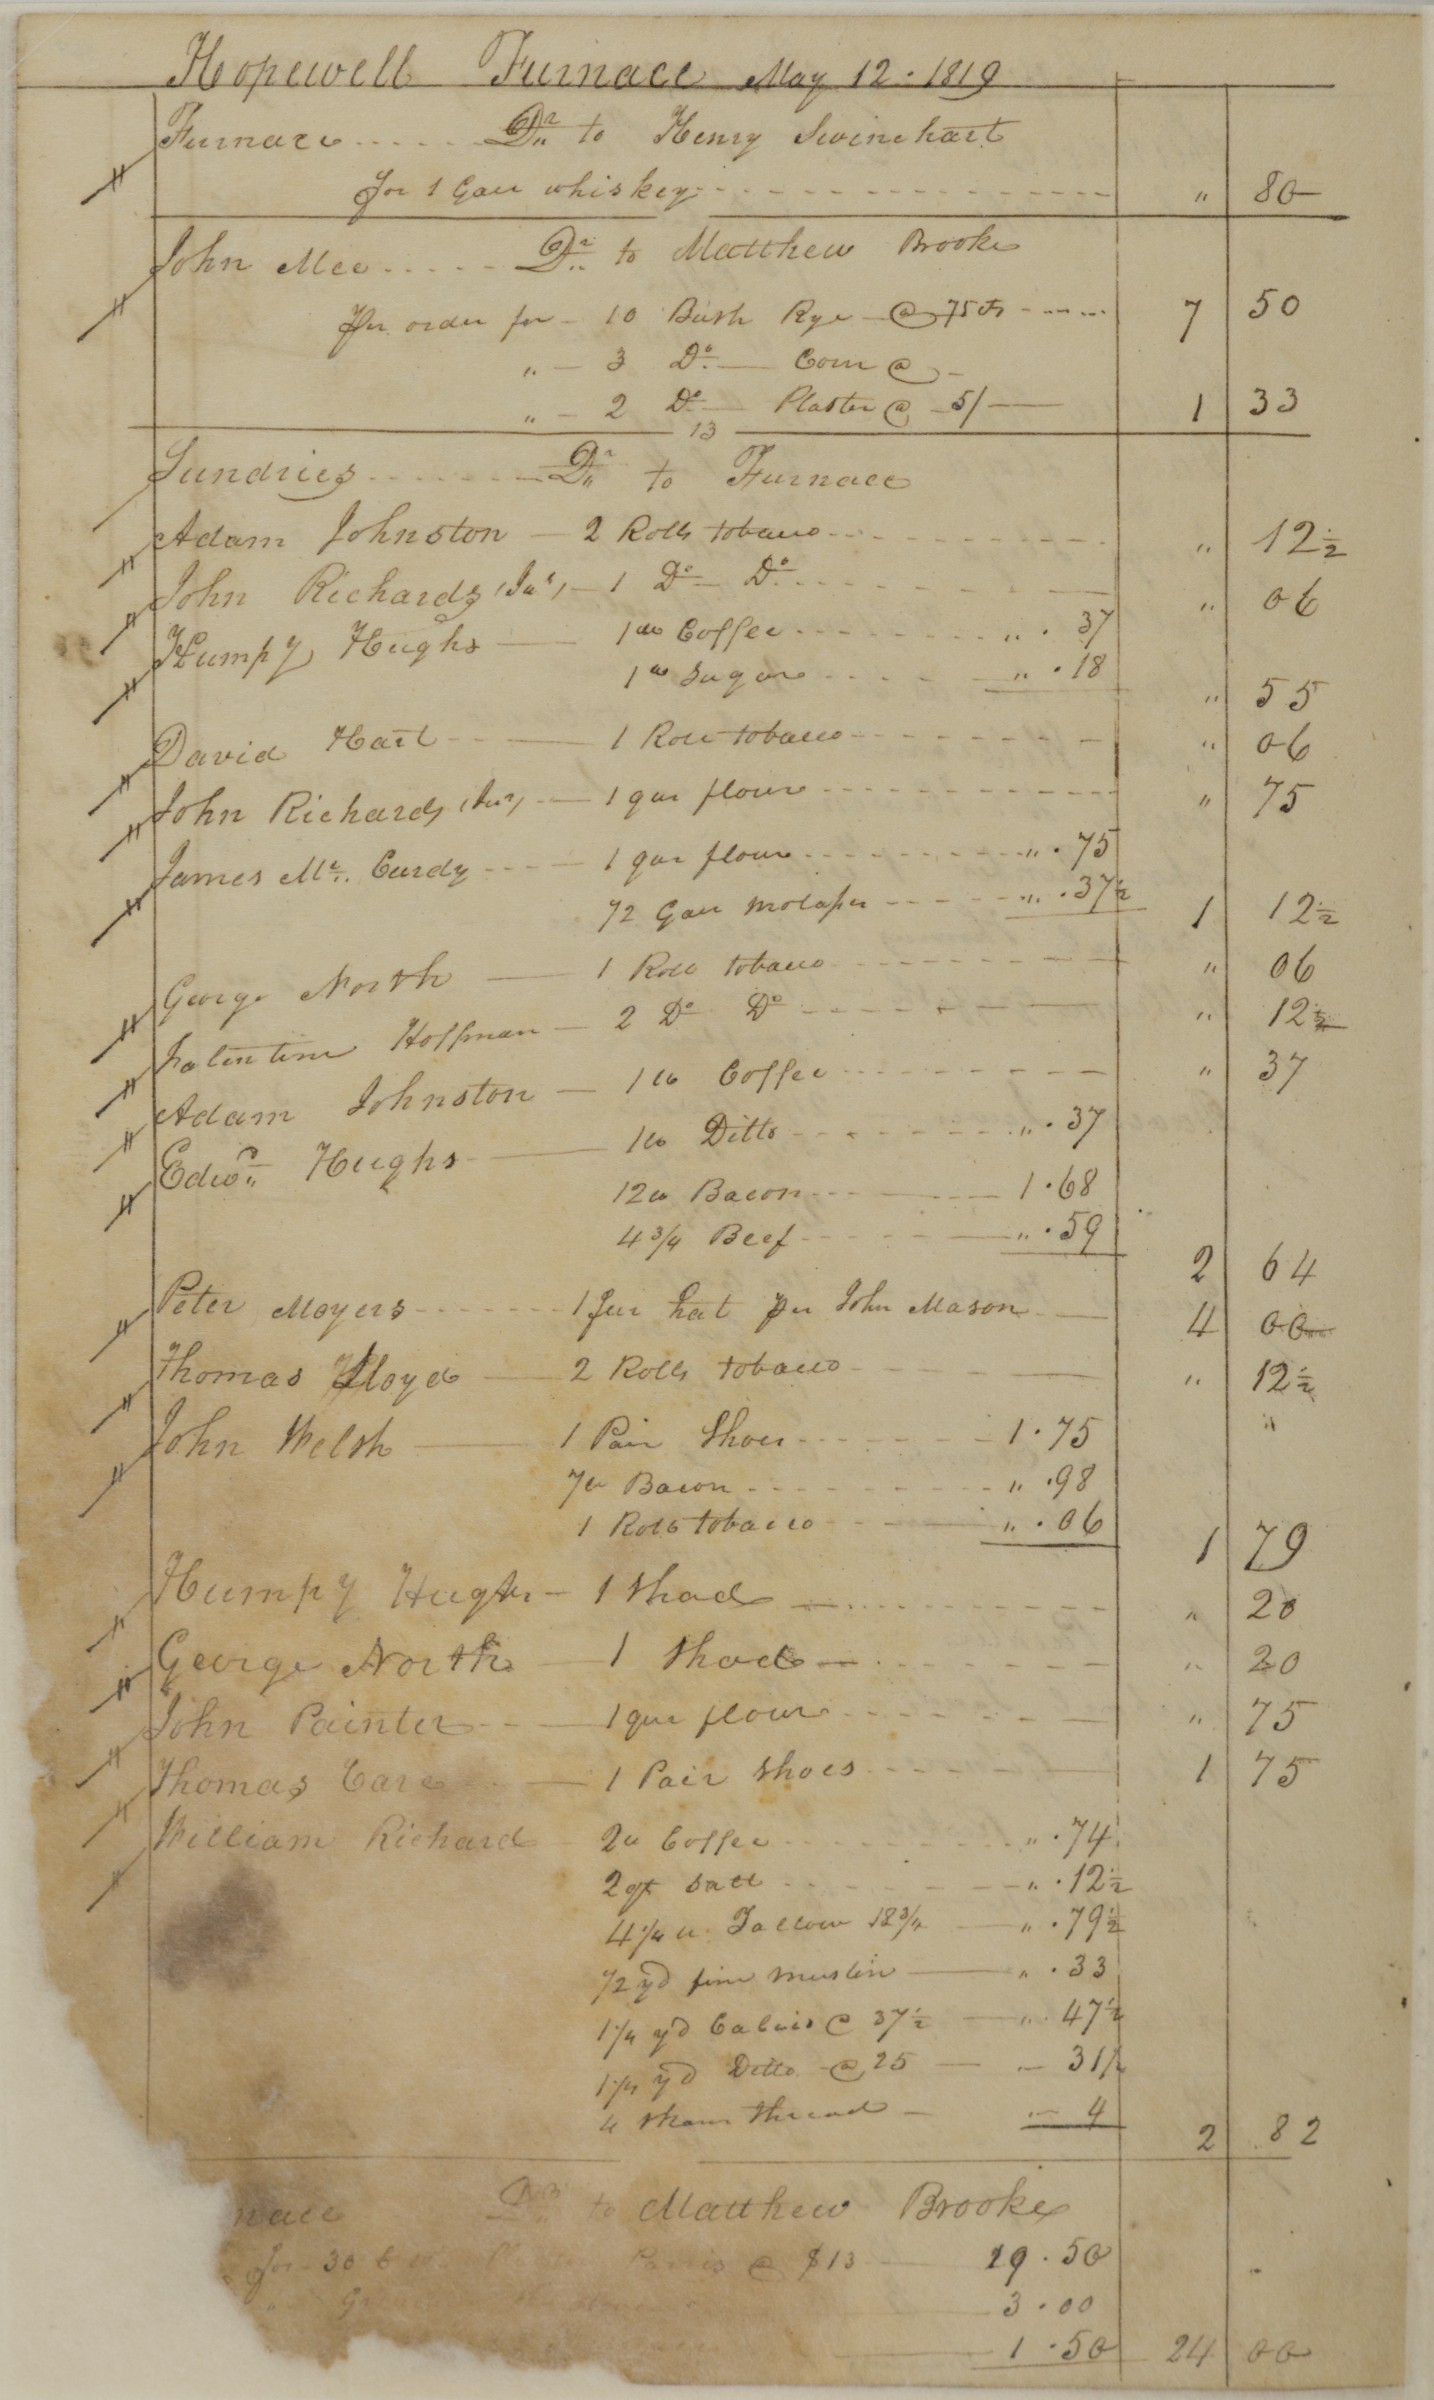 Hopewell Furnace May 12. 1819
Furnace Dr to Henry Swinehart
for 1 Gall whiskey " 80
John Mee Dr to Matthew Brooke
Per order for 10 Bush Rye @ 75 cts 7 50
" 3 Do Corn @
" 2 Do Plaster @ 5/ 1 33
13
Sundries Dr to Furnace
Adam Johnston 2 Rolls tobacco " 12½
John Richards (Jnr) 1 Do Do " 06
Humpy Hughs 1 lb Coffee " . 37
1 lb Sugar " . 18 " 55
David Hart 1 Roll tobacco " 06
John Richards (Jnr) 1 qur flour " 75
James Mc Curdy 1 qur flour " . 75
½ Gall molasses " . 37½ 1 12½
George North 1 Roll tobacco " 06
Valentine Hoffman 2 Do Do " 12½
Adam Johnston 1 lb Coffee " 37
Edwd Hughs 1 lb Ditto " . 37
12 lb Bacon 1 . 68
4¾ Beef " . 59 2 64
Peter Moyers 1 fur hat per John Mason 4 00
Thomas Lloyd 2 Rolls tobacco " 12½
John Welsh 1 Pair Shoes 1 . 75 "
7 lb Bacon " . 98
1 Roll tobacco " . 06 1 79
Humpy Hughs 1 Shad " 20
George North 1 Shad " 20
John Painter 1 qur flour " 75
Thomas Care 1 Pair Shoes 1 75
William Richard 2 lb Coffee " . 74
2 qt Salt " . 12½
4¼ lb Tallow 18¾ " . 79½
½ yd fine muslin " . 33
1¼ yd Calico @ 37½ " 47½
1¼ yd Ditto @ 25 " 31½
4 Skeins thread " 4 2 82
nace Dr to Matthew Brooke
for 30 @ $13 19 . 50
3 . 00
1 . 50 24 00